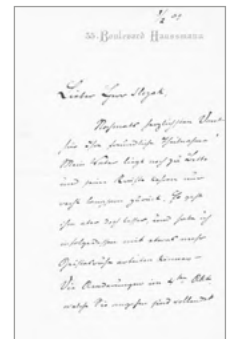 9/2 09
55. Boulevard Haussmann
Lieber Herr Slezak,
Nochmals herzlichsten Dank
für Ihre freundliche Theilnahme!
Mein Vater liegt noch zu Bette
und seine Kräfte kehren nur
recht langsam zurück. Es geht
ihm aber doch besser, und habe ich
infolgedessen mit etwas mehr
Geistesruhe arbeiten können –
Die Aenderungen im 4ten Akt
welche Sie angehen sind vollendet